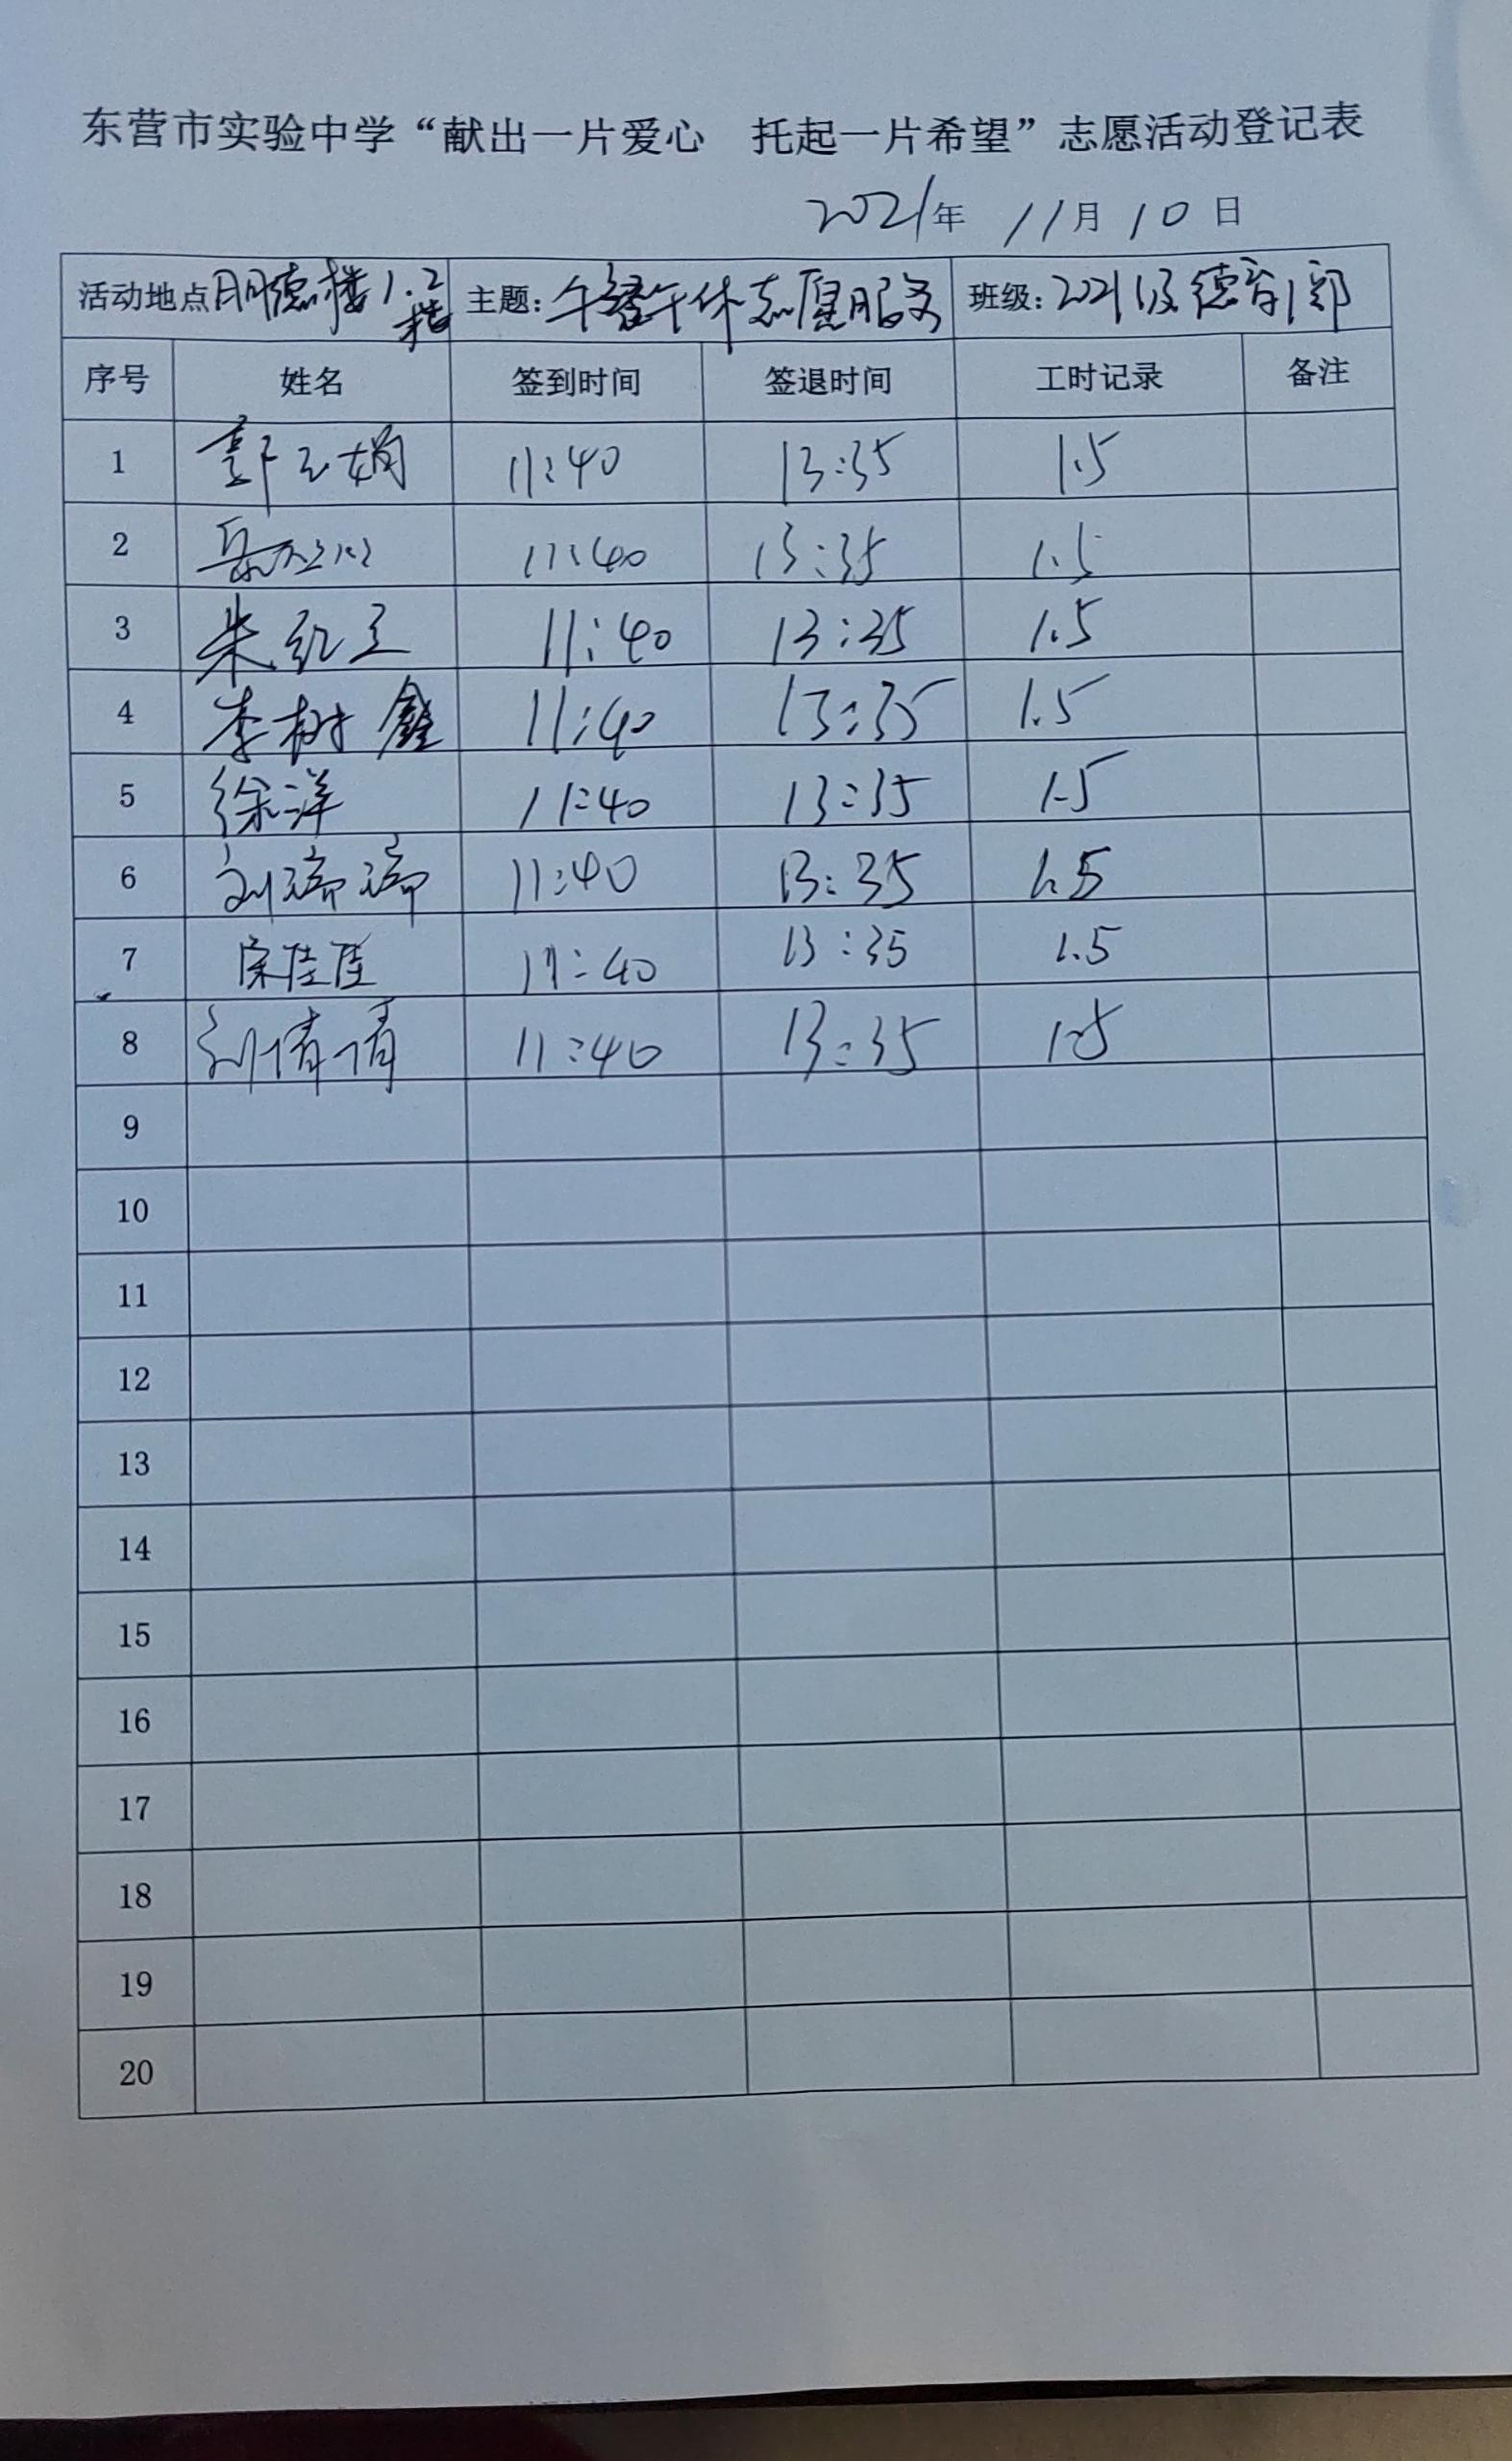 东营市实验中学“献出一片爱心 托起一片希望”志愿活动登记表
2021年 11月 10日
活动地点 明德楼1.2楼 主题：午餐午休志愿服务 班级：2021级德育1部
序号 姓名 签到时间 签退时间 工时记录 备注
1 郭玉娟 11:40 13:35 1.5
2 11:40 13:35 1.5
3 朱红玉 11:40 13:35 1.5
4 李树鑫 11:40 13:35 1.5
5 徐洋 11:40 13:35 1.5
6 刘瑞瑞 11:40 13:35 1.5
7 宋佳佳 11:40 13:35 1.5
8 刘倩倩 11:40 13:35 1.5
9
10
11
12
13
14
15
16
17
18
19
20